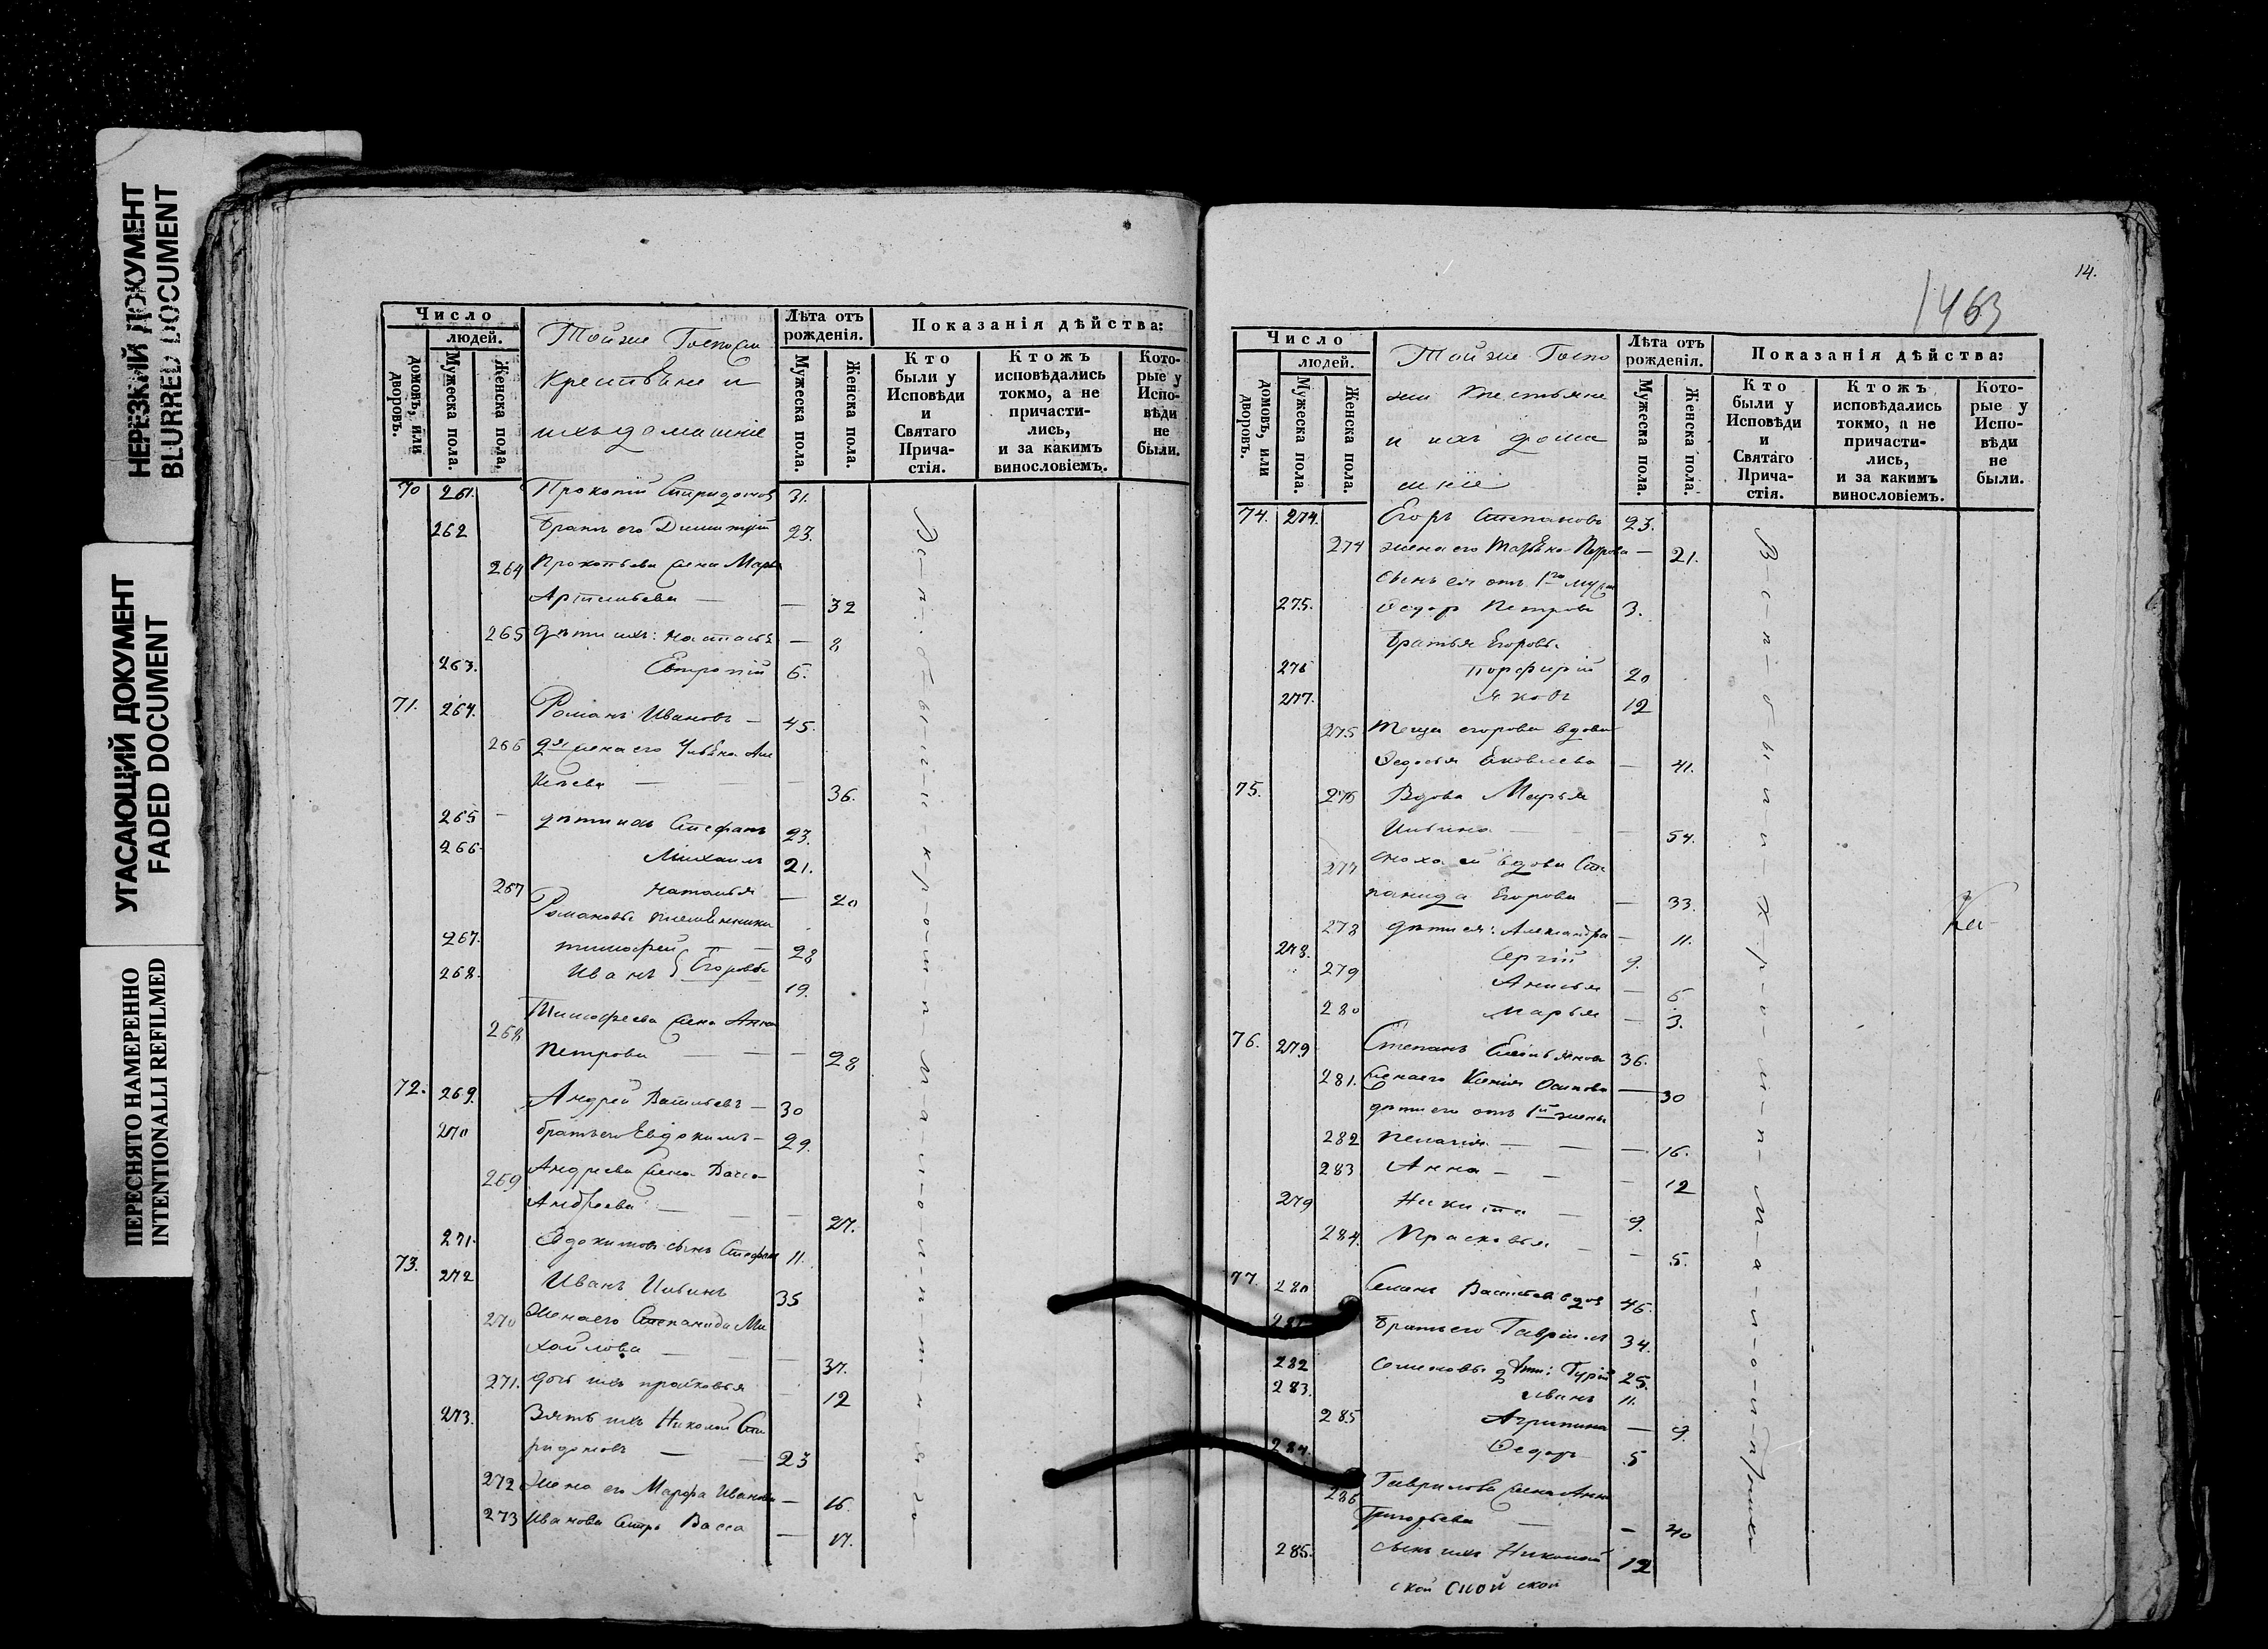 НЕРЕЗКИЙ ДОКУМЕНТ
BLURRED DOCUMENT
УГАСАЮЩИЙ ДОКУМЕНТ
FADED DOCUMENT
ПЕРЕСНЯТО НАМЕРЕННО
INTENTIONALLI REFILMED
Число
людей.
домовъ, или дворовъ.
Мужеска пола.
Женска пола.
Тойже Госпожи
Крестьяне и
ихъ домашніе
Лѣта отъ рожденія.
Мужеска пола.
Женска пола.
Показанія дѣйства:
Кто были у Исповѣди и Святаго Прича-стія.
Ктожъ исповѣдались токмо, а не причасти-лись, и за какимъ винословіемъ.
Кото-рые у Испо-вѣди не были.
70 261. Прокопій Спиридонов 31.
262 Братъ его Димитрій 23.
264 Прокопьева жена Марья
Артемьева — — 32
265 Дѣти ихъ: — 8
263. Евтропій 6.
71. 264. Романъ Ивановъ — 45.
266 2я жена его Ульяна Але
ксѣева — — 36.
265 — дѣти ихъ Стефанъ 23.
266. Михаилъ 21.
267 Наталья — 20
Романовы племянники
267. Тимофей — — 28
268. Иванъ Егоровы 19.
268 Тимофеева жена Анна
Петрова — — — 28
72. 269. Андрей Васильевъ — 30
270 братъ его Евдокимъ — 29.
269 Андреева жена Васса
Андреева — — — 27.
271. Евдокимовъ сынъ Стефан 11.
73. 272 Иванъ Ильинъ 35
270 Жена его Степанида Ми
хайлова — — — 37.
271. дочь ихъ Прасковья — 12
273. Зять ихъ Николай Спи
ридоновъ — — 23
272 Жена его Марфа Иванова — 16
273 Иванова Васса — 17.
14.
1463
Число
людей.
домовъ, или дворовъ.
Мужеска пола.
Женска пола.
Тойже Госпо
жи Крестьяне
и ихъ дома
шніе
Лѣта отъ рожденія.
Мужеска пола.
Женска пола.
Показанія дѣйства:
Кто были у Исповѣди и Святаго Прича-стія.
Ктожъ исповѣдались токмо, а не причасти-лись, и за какимъ винословіемъ.
Кото-рые у Испо-вѣди не были.
74. 274. Егоръ Степановъ 23.
274 жена его Петрова — 21.
сынъ ея отъ 1го мужа
275. Ѳедор Петров 3.
Братья Егоровы
276 Порфирій 20
277. Яковъ 12
275 Теща егорова вдова
Ѳедосья Яковлева — 41.
75. 276 Вдова Марья
Ильина — — 54.
277 сноха ей вдова Сте
панида Егорова — 33.
278 Дѣти ея: Александра — 11.
278. Сергій 9.
279 Анисья — 6
280 Марья — 3.
76. 279 Степанъ Емельянов 36.
281. Жена его Ксенія Осипова — 30
дѣти его отъ 1й жены
282 Пелагія — — — 16.
283 Анна — — — 12
279 Никита — 9.
284. Прасковья — — 5.
77. 280 Семенъ Васильев вдов 46.
281 Братъ его Гавріил 34.
282 Семеновы дѣти: Гурій 25.
283. Иванъ 11.
285 Агрипина — 9.
284. Ѳедоръ 5
286 Гаврилова жена Анна
Григорьева — — 40
285. сынъ ихъ Николай 12
ской ской ской